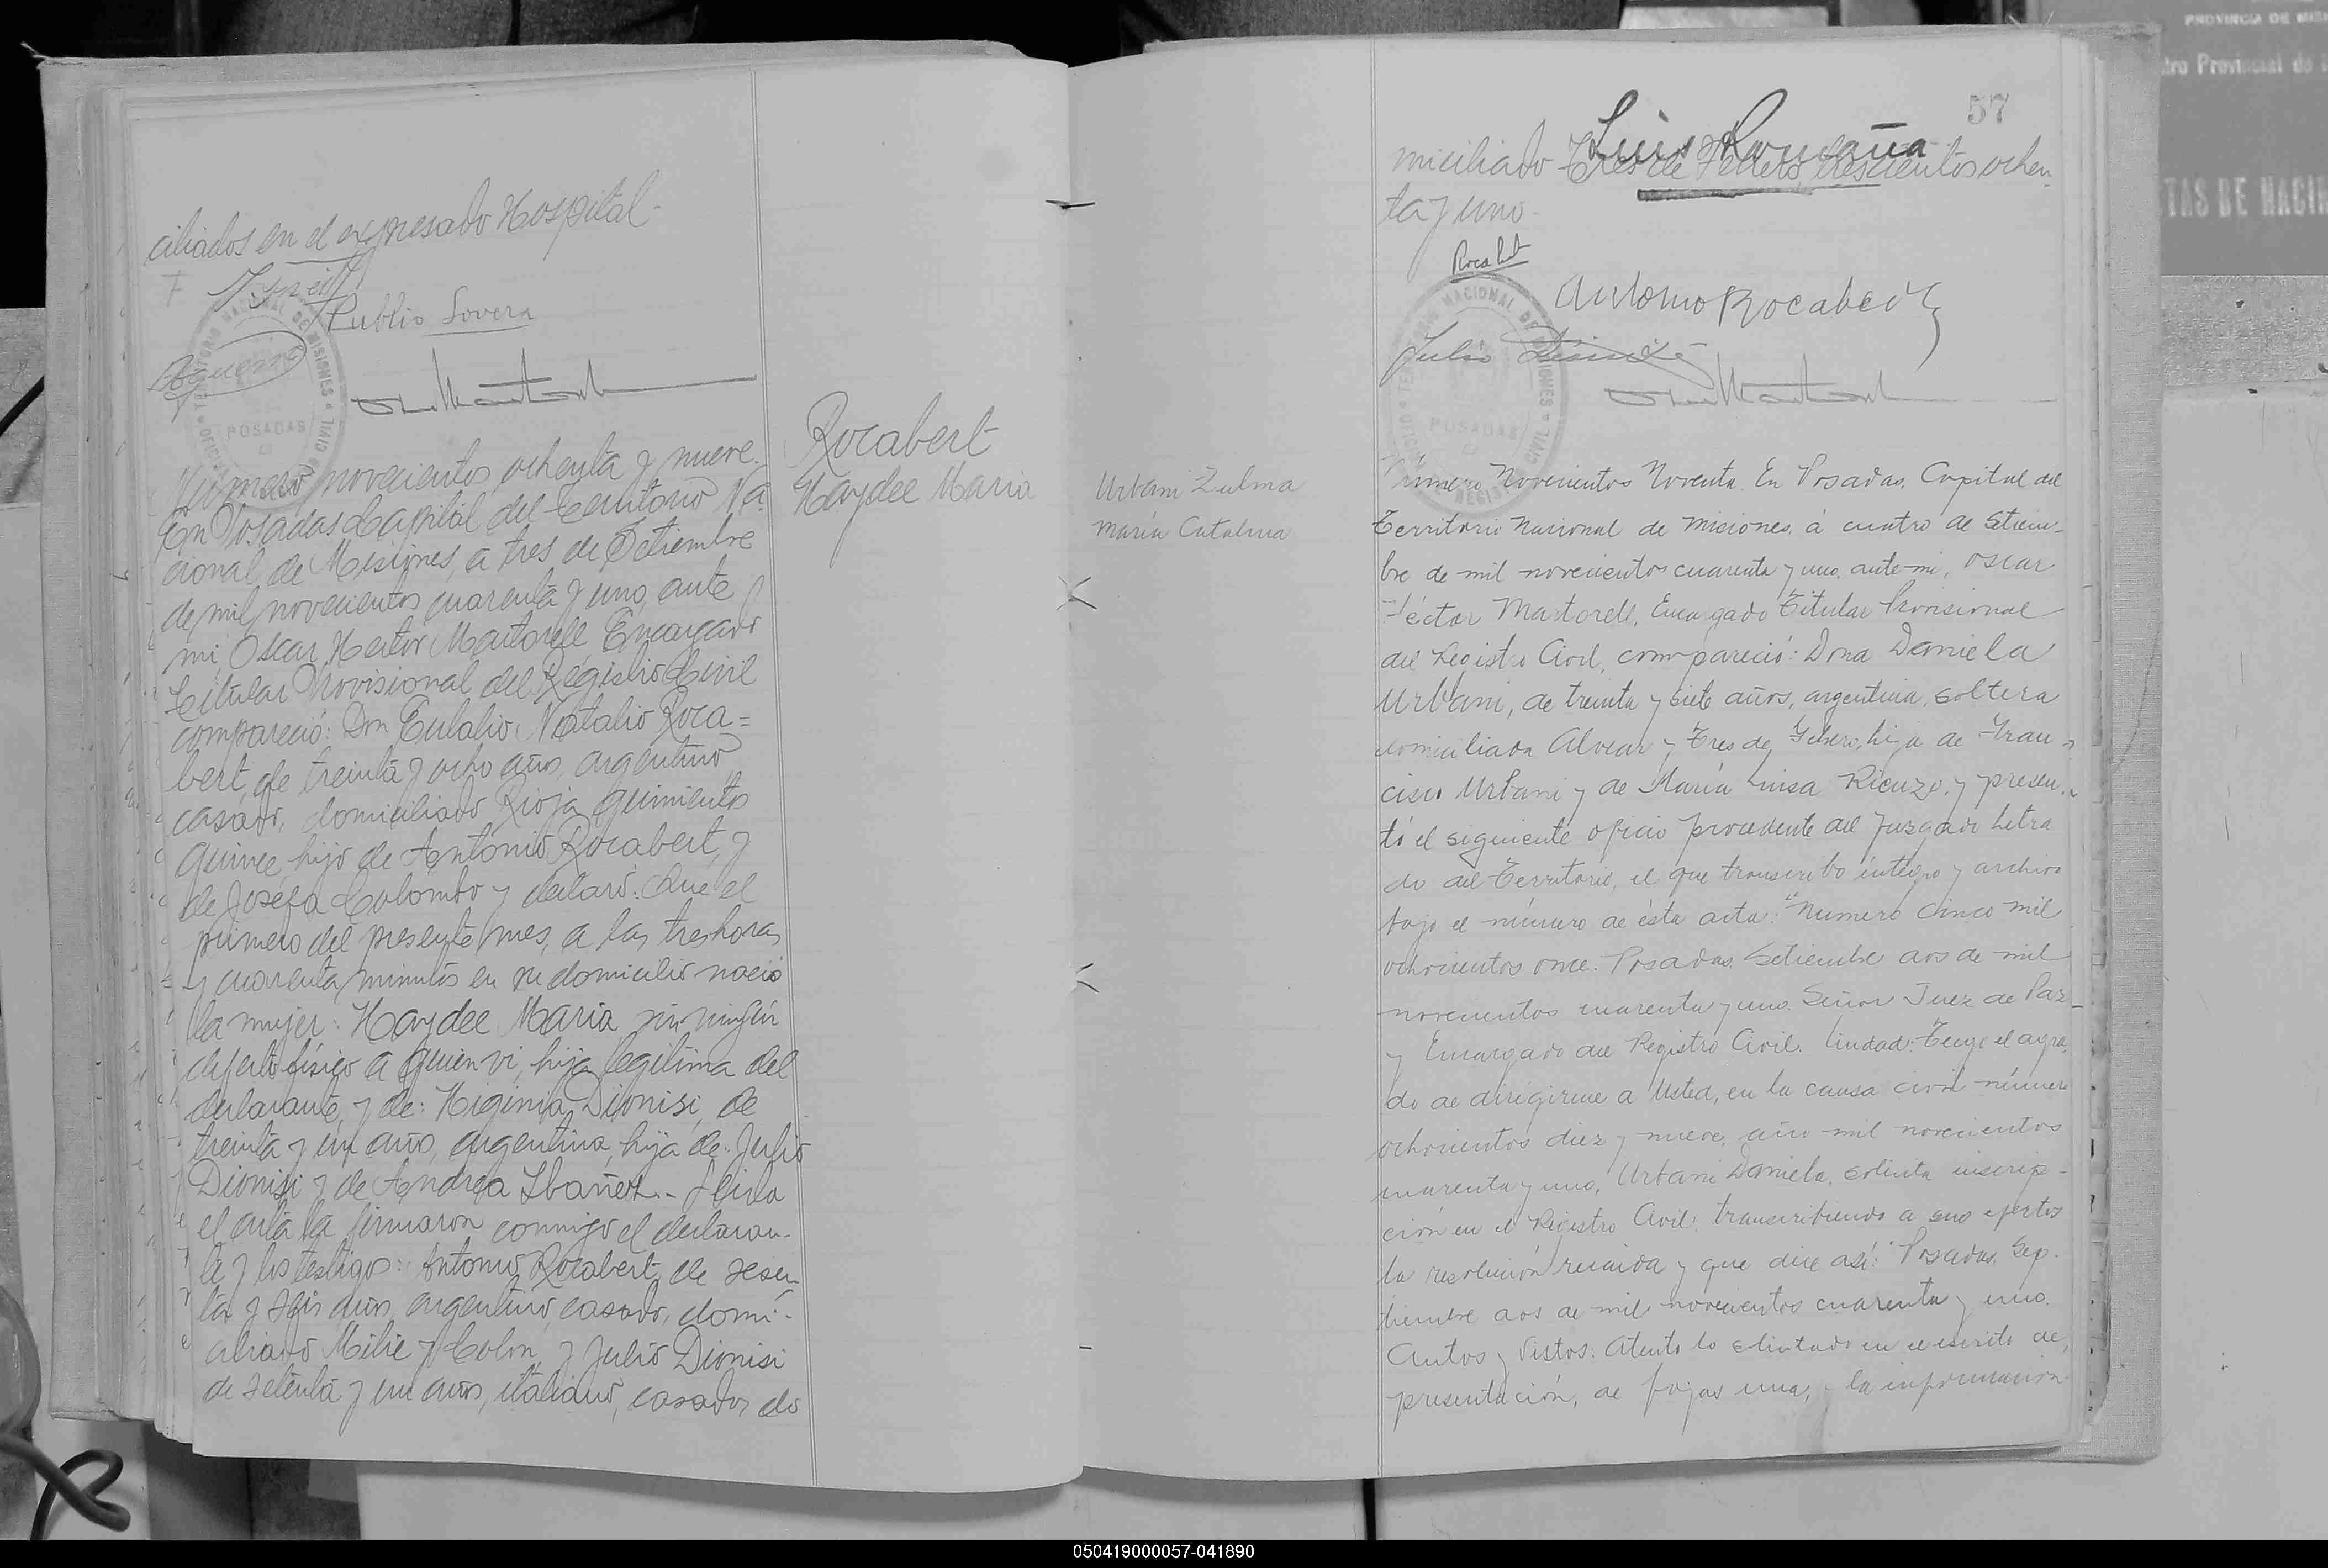 ciliados en el expresado Hospital-
Publio Lovera
TERRITORIO NACIONAL DE MISIONES
POSADAS
Rocabert
Haydee Maria
Numero novecientos ochenta y nueve.
En Posadas Capital del Territorio Na
cional de Misiones, a tres de Setiembre
de mil novecientos cuarenta y uno, ante
mi, Oscar Hector Martorell, Encargado
Titular Provisional del Registro Civil
compareció: Don Eulalio Natalio Roca=
bert, de treinta y ocho años, argentino
casado, domiciliado Rioja quinientos
quince, hijo de Antonio Rocabert, y
de Josefa Colombo y declaró: Que el
primero del presente mes, a las tres horas
y cuarenta minutos en su domicilio nació
la mujer: Haydee Maria sin ningún
defecto físico a quien vi, hija legitima del
declarante, y de: Higinia Dionisi, de
treinta y un años, argentina, hija de: Julio
Dionisi y de Andrea Ibañez.- Leida
el acta la firmaron conmigo el declaran-
te y los testigos: Antonio Rocabert, de sesen
ta y seis años, argentino, casado, domi-
ciliado Mitre y Colon, y Julio Dionisi
de setenta y un años, italiano, casado, do
57
Luis Romaña
miciliado Tres de Febrero, trescientos ochen
ta y uno-
Rocabert
Antonio Rocabert
Julio Dionisi
TERRITORIO NACIONAL DE MISIONES
POSADAS
Urbani Zulma
María Catalina
Número Novecientos Noventa. En Posadas, Capital del
Territorio Nacional de Misiones, á cuatro de Setiem-
bre de mil novecientos cuarenta y uno, ante mi, Oscar
Héctor Martorell, Encargado Titular Provisional
del Registro Civil, compareció: Doña Daniela
Urbani, de treinta y siete años, argentina, soltera
domiciliada Alvear y Tres de Febrero, hija de Fran-
cisco Urbani y de María Luisa Rienzo, y presen-
tó el siguiente oficio procedente del Juzgado Letra
do del Territorio, el que transcribo íntegro y archivo
bajo el número de ésta acta: "Numero cinco mil
ochocientos once. Posadas, Setiembre dos de mil
novecientos cuarenta y uno. Señor Juez de Paz-
y Encargado del Registro Civil. Ciudad: Tengo el agra
do de dirigirme a Usted, en la causa civil número
ochocientos diez y nueve, año mil novecientos
cuarenta y uno, Urbani Daniela, solicita inscrip-
ción en el Registro Civil, transcribiendo a sus efectos
la resolución recaída y que dice asi: "Posadas, Sep-
tiembre dos de mil novecientos cuarenta y uno.
Autos y Vistos: Atento lo solicitado en el escrito de
presentación, de fojas una, y la información
PROVINCIA DE MISI
tro Provincial de l
TAS DE NACIM
050419000057-041890